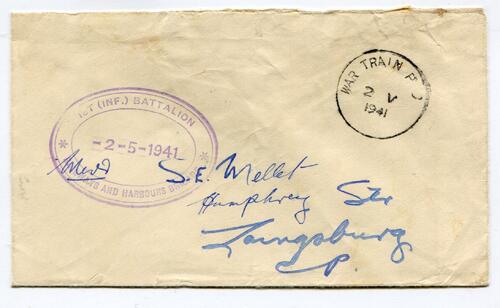 1ST (INF.) BATTALION
-2-5-1941
AND HARBOURS
WAR TRAIN P O
2 V
1941
S.E. Mellet
Humphrey Str
Laingsburg
C.P.